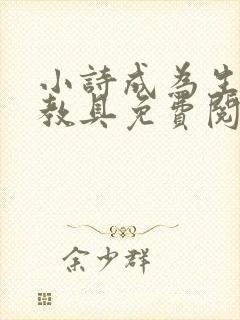 小詩成為生
教具免費閱
余少群